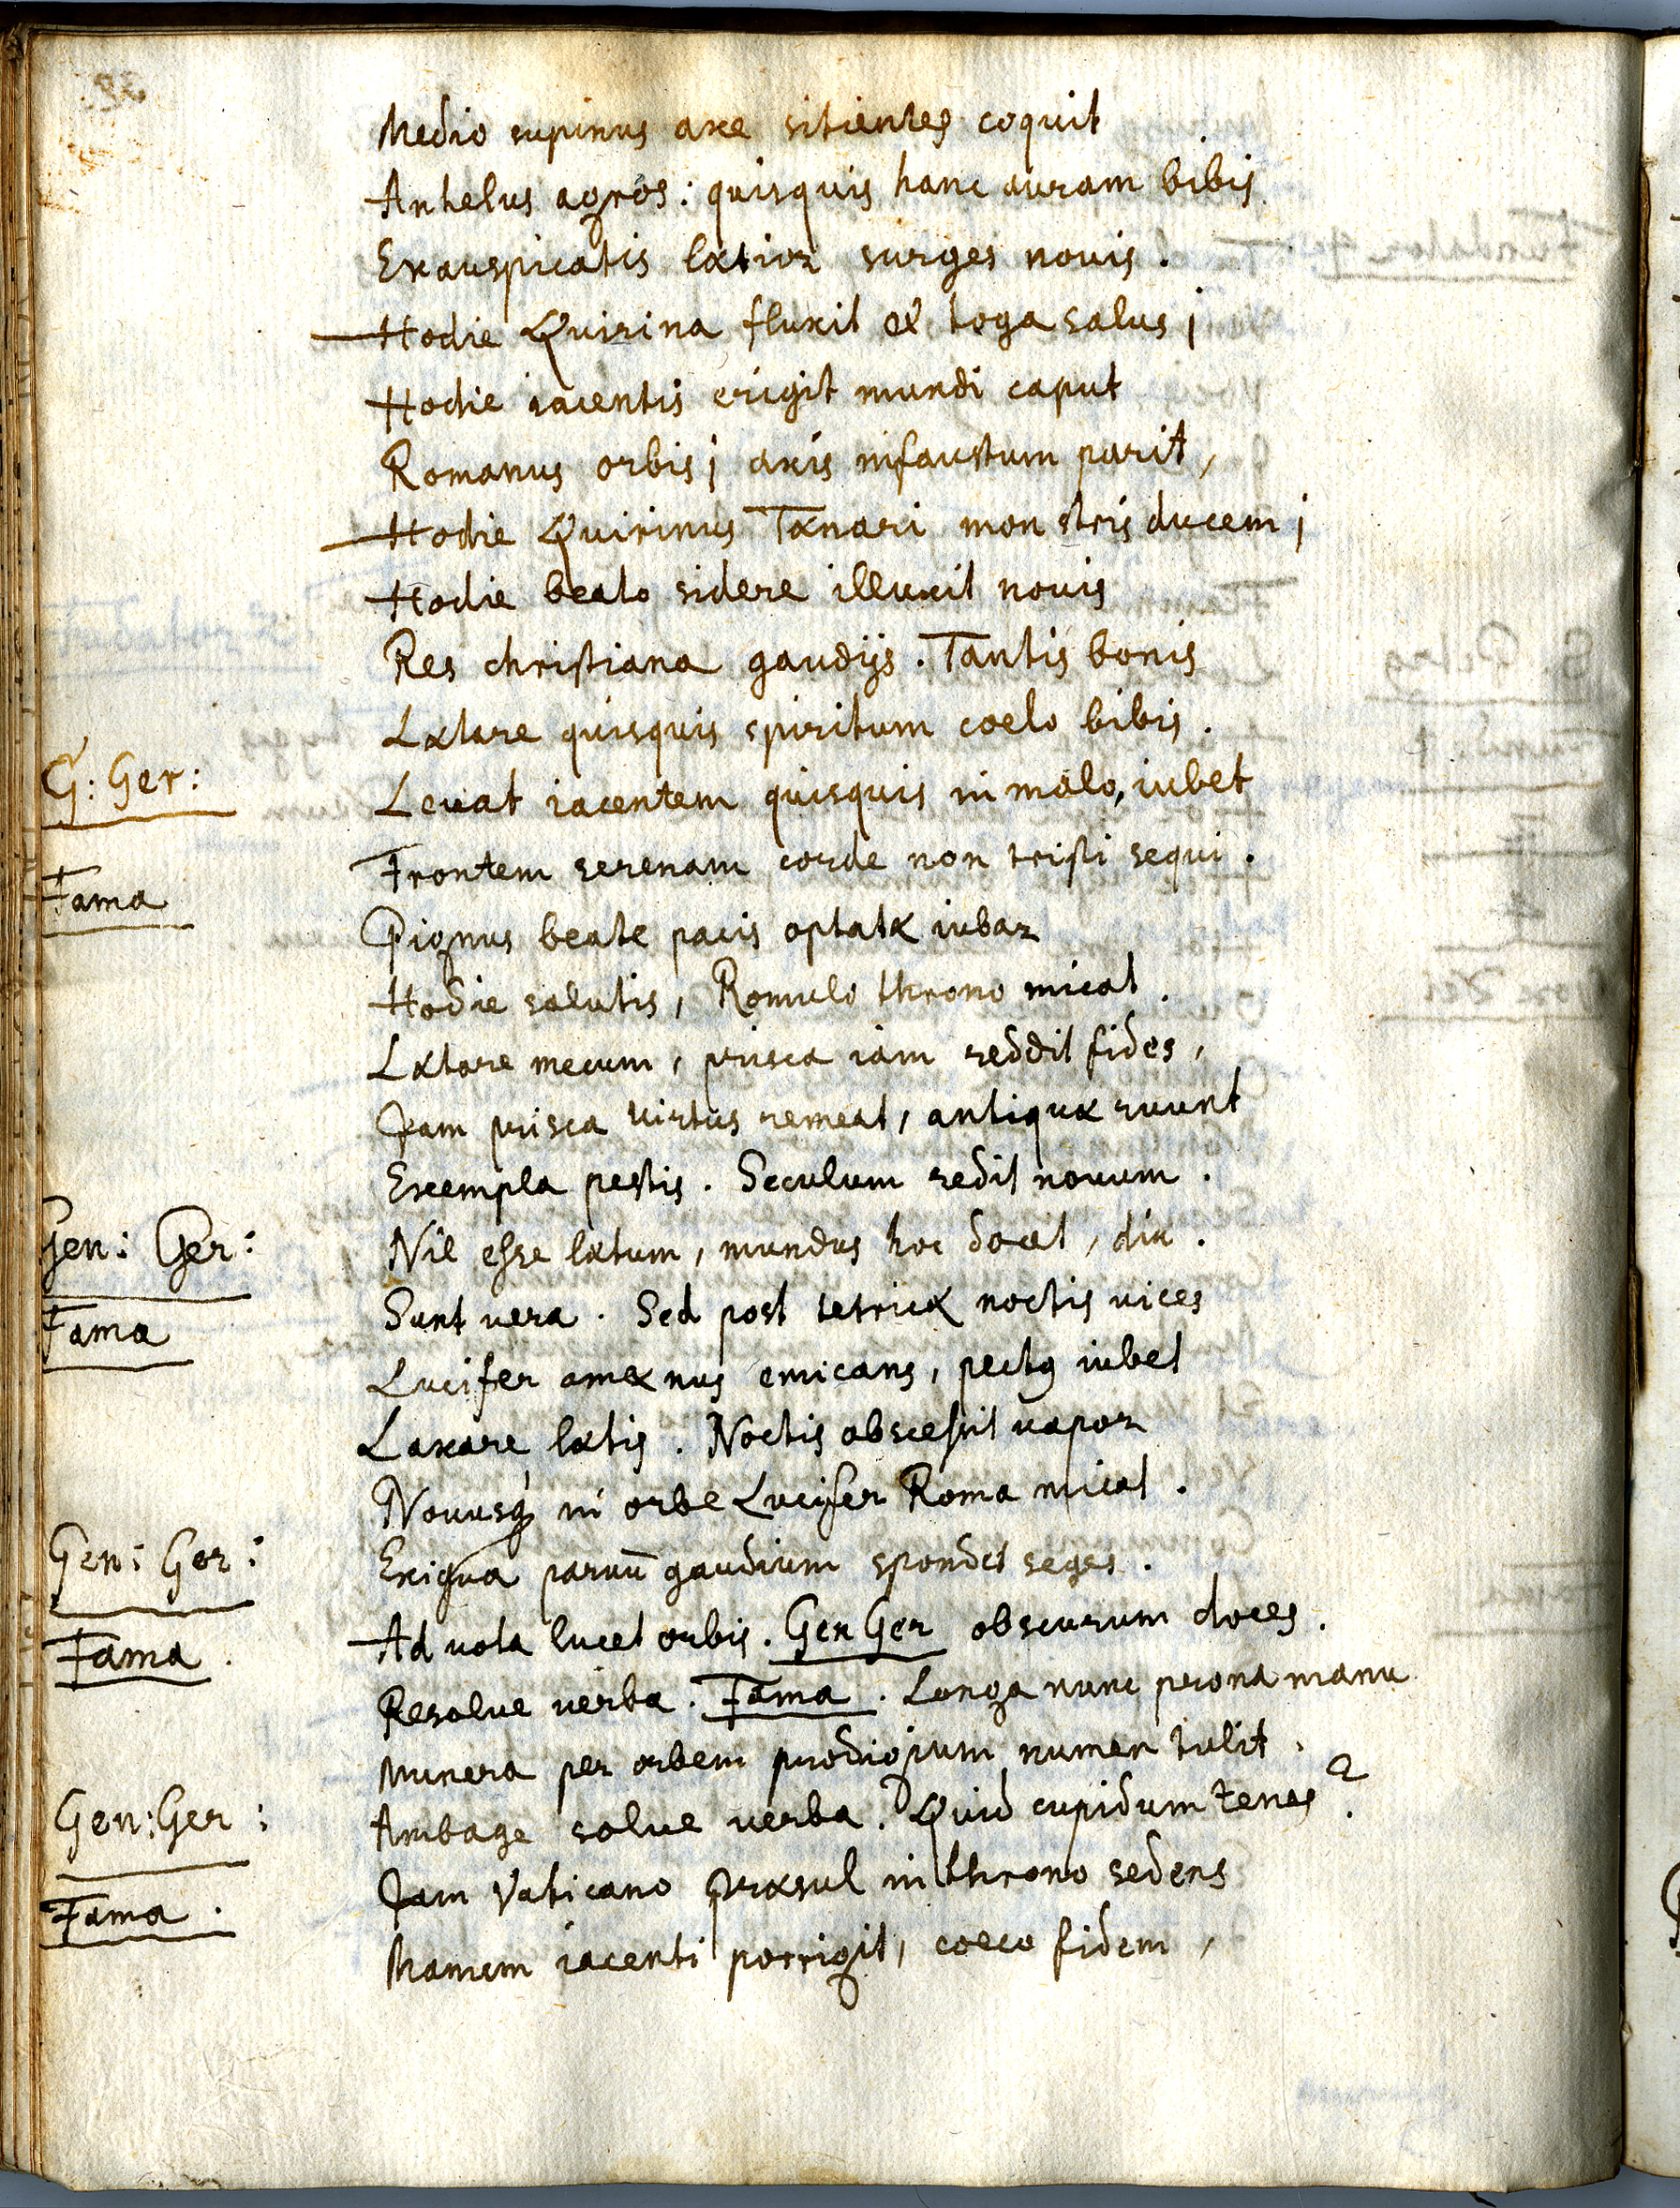 Medio supinus axe sitientes coquit
Anhelus agros: quisquis hanc auram bibis
Exauspicatis lætior surges nouis.
Hodie Quirina fluxit ex toga salus;
Hodie iacentis erigit mundi caput
Romanus orbis; axis infaustum parit,
Hodie Quirinus Tænari monstris ducem;
Hodie beato sidere illuxit nouis
Res christiana gaudijs. Tantis bonis
Lætare quisquis spiritum coelo bibis.
G: Ger: Leuat iacentem quisquis in malo, iubet
Frontem serenam corde non tristi sequi.
Fama Pignus beate pacis optatæ iubar
Hodie salutis, Romulo throno micat.
Lætare mecum, prisca iam reddit fides,
Jam prisca virtus remeat, antiquæ ruunt
Exempla pestis. Seculum redit nouum.
Gen: Ger: Nil esse lætum, mundus hoc docet, diu.
Fama Sunt vera. Sed post tetricæ noctis uices
Lucifer amænus emicans, pectꝯ iubet
Laxare lætis. Noctis abscessit uapor
Nouusq́ in orbe Lucifer Roma micat.
Gen: Ger: Exigua paruū gaudium spondet seges.
Fama. Ad uota lucet orbis. Gen Ger obscurum doces.
Resolue verba. Fama. Longa nunc prona manu
Munera per orbem prodigium numen tulit.
Gen: Ger: Ambage solue uerba. Quid cupidum tenes?
Fama. Jam Vaticano præsul in throno sedens
Manum iacenti porrigit, coeco fidem,